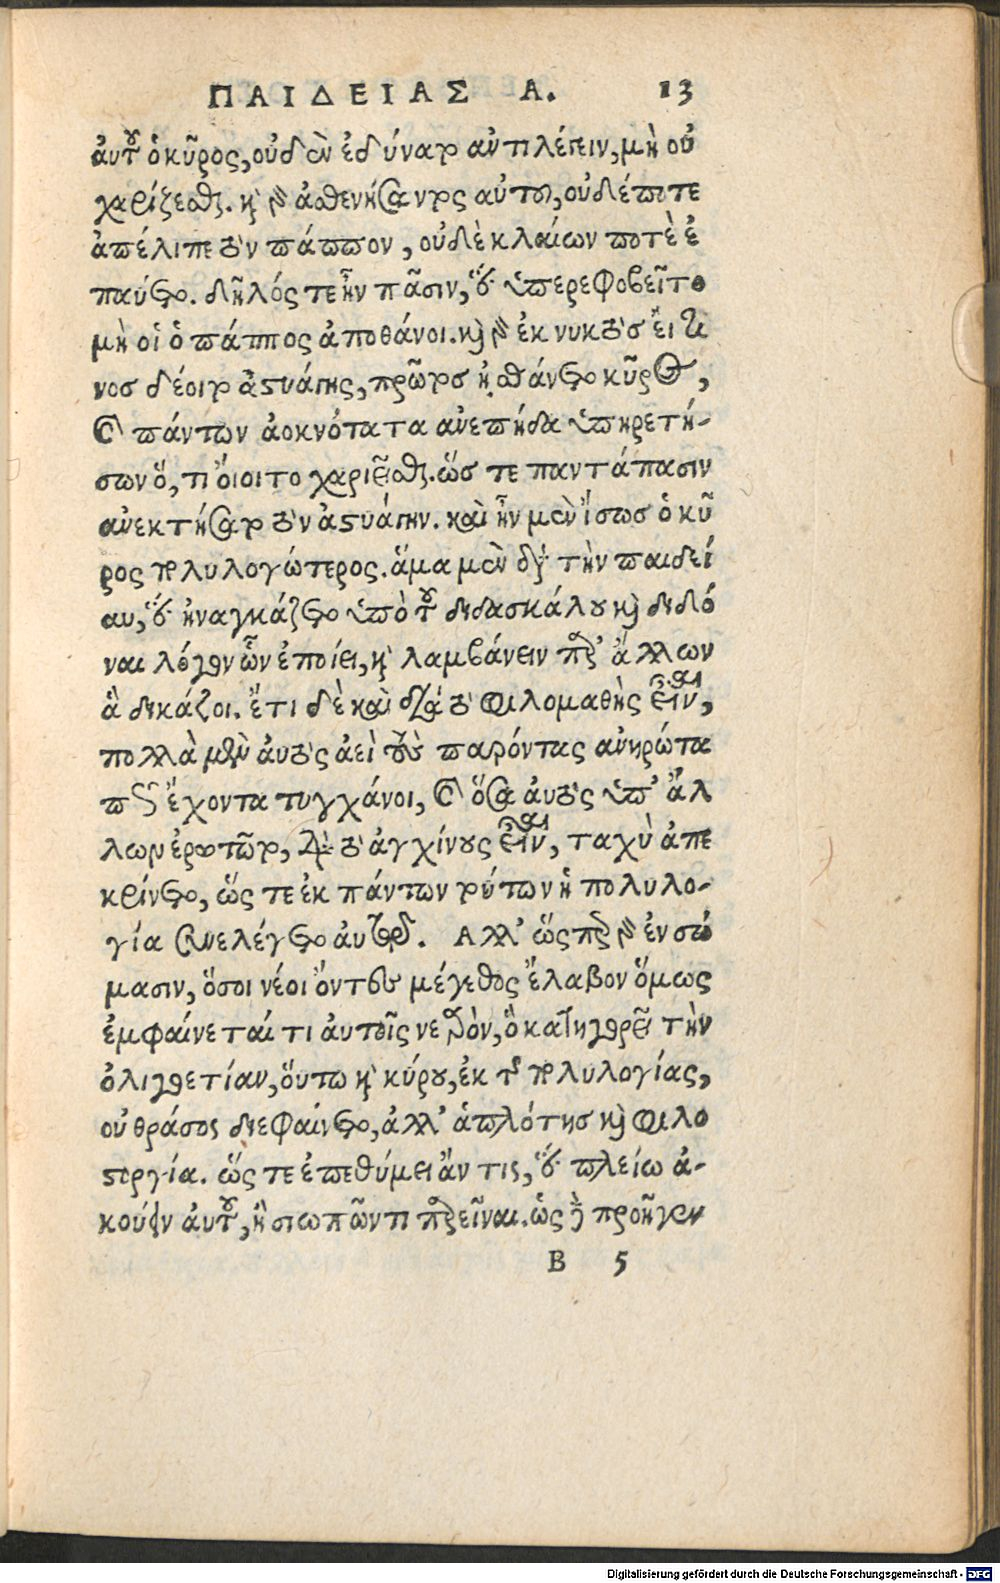 ΠΑΙΔΕΙΑΣ Α. 13
αὐτοῦ ὁ κῦρος, οὐδὲν ἐδύνατο ἀντιλέγειν, μὴ οὐ
χαρίζεσθαι. καὶ γὰρ ἀσθενήσαντος αὐτοῦ, οὐδέποτε
ἀπέλιπε τὸν πάππον, οὐδὲ κλαίων ποτὲ ἐ
παύετο. δῆλός τε ἦν πᾶσιν, ὅτι ὑπερεφοβεῖτο
μὴ οἱ ὁ πάππος ἀποθάνοι. καὶ γὰρ ἐκ νυκτὸς εἴ τι
νος δέοιτο ἀστυάγης, πρῶτος ᾐσθάνετο κῦρος,
καὶ πάντων ἀοκνότατα ἀνεπήδα ὑπηρετή-
σων ὅ, τι οἴοιτο χαριεῖσθαι. ὥς τε παντάπασιν
ἀνεκτήσατο τὸν ἀστυάγην. καὶ ἦν μὲν ἴσως ὁ κῦ
ρος πολυλογώτερος. ἅμα μὲν διὰ τὴν παιδεί
αν, ὅτι ἠναγκάζετο ὑπὸ τοῦ διδασκάλου καὶ διδό
ναι λόγον ὧν ἐποίει, καὶ λαμβάνειν παρ' ἄλλων
ἃ δικάζοι. ἔτι δὲ καὶ διὰ τὸ φιλομαθὴς εἶναι,
πολλὰ μὲν αὐτὸς ἀεὶ τοὺς παρόντας ἀνηρώτα
πῶς ἔχοντα τυγχάνοι, καὶ ὅσα αὐτὸς ὑπ' ἄλ
λων ἐρωτῷτο, διὰ τὸ ἀγχίνους εἶναι, ταχὺ ἀπε
κρίνετο, ὥς τε ἐκ πάντων τούτων ἡ πολυλο-
γία συνελέγετο αὐτῷ. Αλλ' ὥςπερ γὰρ ἐν σώ
μασιν, ὅσοι νέοι ὄντες μέγεθος ἔλαβον ὅμως
ἐμφαίνεταί τι αὐτοῖς νεαρὸν, ὃ κατηγορεῖ τὴν
ὀλιγοετίαν, οὕτω καὶ κύρου, ἐκ τῆς πολυλογίας,
οὐ θράσος διεφαίνετο, ἀλλ' ἁπλότης καὶ φιλο
στοργία. ὥς τε ἐπεθύμει ἄν τις, ἔτι πλείω ἀ-
κούειν αὐτοῦ, ἢ σιωπῶντι παρεῖναι. ὡς δὲ προῆγεν
B 5
Digitalisierung gefördert durch die Deutsche Forschungsgemeinschaft - DFG